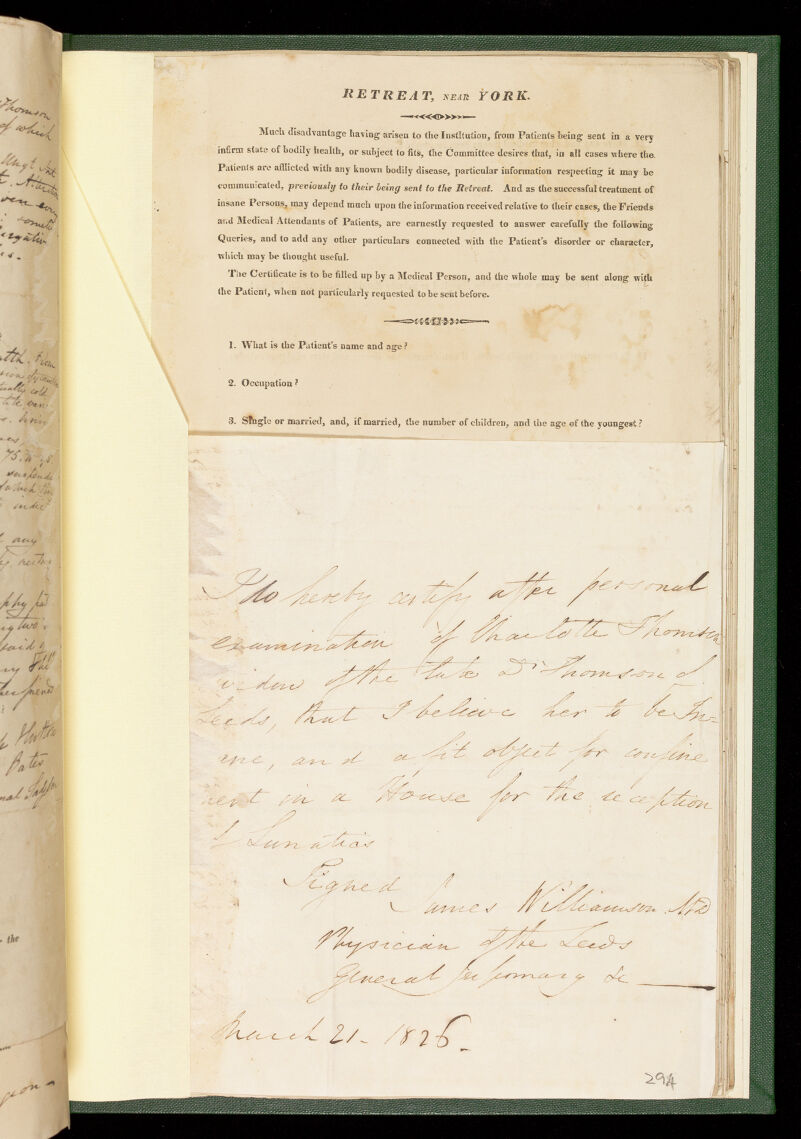 RETREAT, NEAR YORK.
Much disadvantage having arisen to the Institution, from Patients being sent in a very
infirm state of bodily health, or subject to fits, the Committee desires that, in all cases where the
Patients are afflicted with any known bodily disease, particular information respecting it may be
communicated, previously to their being sent to the Retreat. And as the successful treatment of
insane Persons, may depend much upon the information received relative to their cases, the Friends
and Medical Attendants of Patients, are earnestly requested to answer carefully the following
Queries, and to add any other particulars connected with the Patient's disorder or character,
which may be thought useful.
The Certificate is to be filled up by a Medical Person, and the whole may be sent along with
the Patient, when not particularly requested to be sent before.
1. What is the Patient's name and age?
2. Occupation?
3. Single or married, and, if married, the number of children, and the age of the youngest?
I do hereby certify after personal
examination of Charlotte Thomson
widow of the late Dr Thomson of
Leeds, that I believe her to be In=
ane, and a fit object for confine
ment in a House for the reception
of Lunatics
Signed
James Williamson MD
Physician of the Leeds
General Infirmary &c
March 21 - 1826 -
29A
Thomson
of which
any
two
said
Bates
the